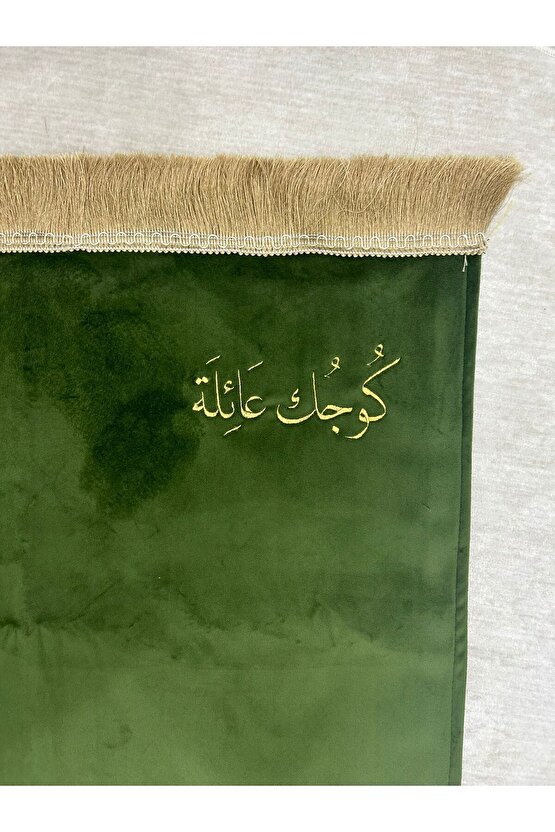 كُوجُك عَائِلَة